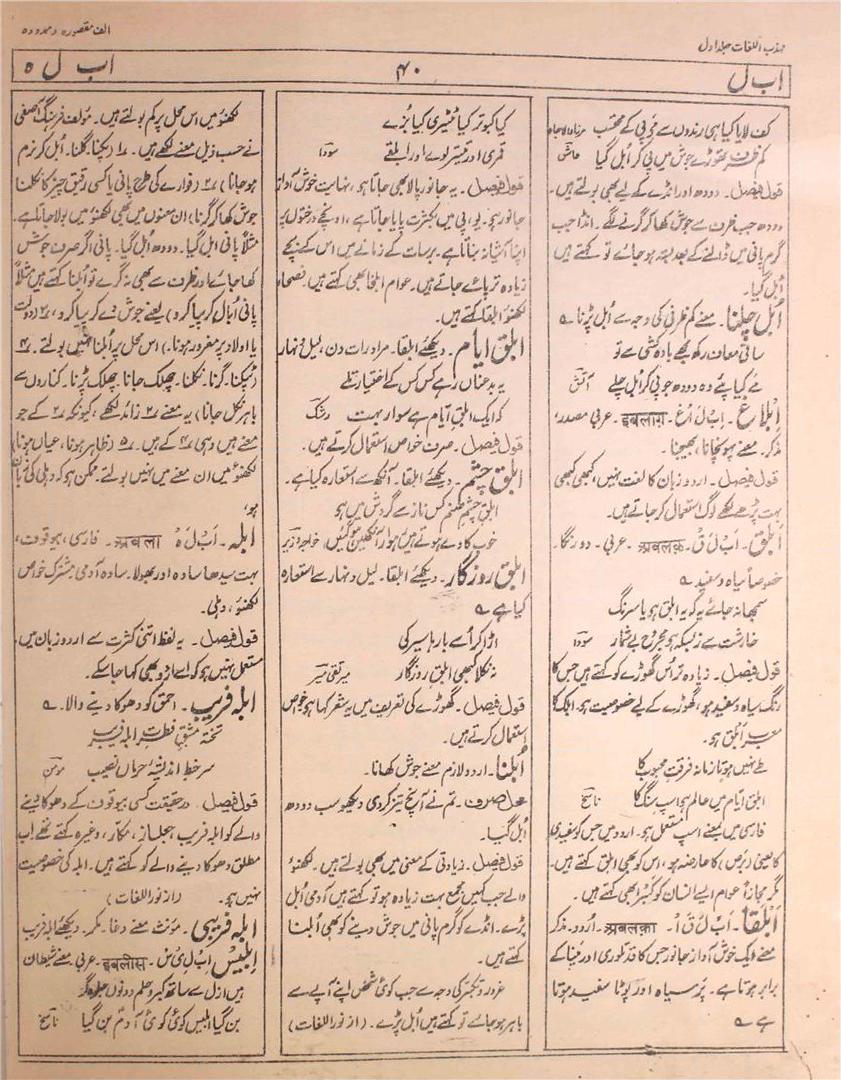 مہذب اللغات جلد اول
الف مقصورہ و ممدودہ
اب ل
۴۰
اب ل ہ
کف لایا کیا ہی رندوں سے مے پی کے محتسب
کم ظرف تھوڑے جوش میں پی کر اُبل گیا
قول فیصل۔ دودھ اور انڈے کے لیے بھی بولتے ہیں۔
دودھ جب ظرف سے جوش کھا کر گرنے لگے۔ انڈا جب
گرم پانی میں ڈالنے کے بعد بستہ ہو جائے تو کہتے ہیں
اُبل گیا۔
اُبل چلنا۔ معنے کم ظرفی کی وجہ سے اُبل پڑنا ؎
ساقی معاف رکھ مجھے بادہ کشی سے تو
مے کیا پئے وہ دودھ جو پی کر اُبل چلے آتش
اِبلاغ۔ اِب لَ اغ۔ इबलाग़۔ عربی مصدر،
مذکر۔ معنے پہونچانا، بھیجنا۔
قول فیصل۔ اردو زبان کا لغت نہیں، کبھی کبھی
بہت پڑھے لکھے لوگ استعمال کر جاتے ہیں۔
اَبلق۔ اَب لَ ق۔ अबलक़۔ عربی۔ دو رنگا۔
خصوصاً سیاہ و سفید ؎
سمجھا نہ جائے یہ کہ یہ ابلق ہو یا سرنگ
خارشت سے زبسکہ ہو مجروح بے شمار سودا
قول فیصل۔ زیادہ تر اُس گھوڑے کو کہتے ہیں جس کا
رنگ سیاہ و سفید ہو، گھوڑے کے لیے خصوصیت ہو۔ ابلک کا
معرب اَبلق ہو۔
طے نہیں ہوتا زمانہ فرقتِ محبوب کا
ابلق ایام میں عالم ہو اسپ سنگ کا ناسخ
فارسی میں بمعنے اسپ مستعمل ہو۔ اردو میں جس کو سفیدی
کا یعنی (برص) کا عارضہ ہو، اس کو بھی ابلق کہتے ہیں۔
مگر مجازاً عوام ایسے انسان کو کبرا بھی کہتے ہیں۔
اَبلقا۔ اَب لَ قَ اْ۔ अबलक़ा۔ اُردو۔ مذکر
معنے ایک خوش آواز جانور جس کا قد طوری اور مینا کے
برابر ہوتا ہے۔ پر سیاہ اور پوٹا سفید ہوتا
ہے ؎
کیا کبوتر کیا ٹٹیری کیا بُزے
قمری اور تیتر لوے اور ابلقے سودا
قول فیصل۔ یہ جانور پالا بھی جاتا ہو، نہایت خوش آواز
جانور ہو۔ یو۔ پی میں بکثرت پایا جاتا ہے، اونچے درختوں پر
اپنا آشیانہ بناتا ہے۔ برسات کے زمانے میں اس کے بچے
زیادہ تر پائے جاتے ہیں۔ عوام ابلخا بھی کہتے ہیں۔ فصحاء
لکھنؤ ابلقا کہتے ہیں۔
ابلق ایام۔ دیکھئے ابلقا۔ مراد رات دن، لیل و نہار
یہ بد عناں رہے کس کس کے اختیار تلے
کہ ایک ابلق ایام ہے سوار بہت رشک
قول فیصل۔ صرف خواص استعمال کرتے ہیں۔
ابلق چشم۔ دیکھئے ابلقا۔ آنکھ سے استعارہ کیا ہے۔
ابلقِ چشم صنم کس ناز سے گردش میں ہو
خوب کاوے ہوتے ہیں ہموار آنکھیں ہو گئیں خواجہ وزیر
ابلق روزگار۔ دیکھئے ابلقا۔ لیل و نہار سے استعارہ
کیا ہے ؎
اڑا کر اُسے بارہا سیر کی
نہ نکلا کبھی ابلقِ روزگار میر تقی میر
قول فیصل۔ گھوڑے کی تعریف میں یہ شعر کہا ہو خواص
استعمال کرتے ہیں۔
اُبلنا۔ اردو لازم معنے جوش کھانا۔
محل صرف۔ تم نے آنچ تیز کر دی دیکھو سب دودھ
اُبل گیا۔
قول فیصل۔ زیادتی کے معنی میں بھی بولتے ہیں۔ لکھنؤ
والے جب کہیں مجمع بہت زیادہ ہو تو کہتے ہیں آدمی اُبل
پڑے۔ انڈے کو گرم پانی میں جوش دینے کو بھی اُبلنا
کہتے ہیں۔
غرور و تکبر کی وجہ سے جب کوئی شخص اپنے آپے سے
باہر ہو جائے تو کہتے ہیں اُبل پڑے۔ (از نور اللغات)
لکھنؤ میں اس محل پر کم بولتے ہیں۔ مؤلف فرہنگ آصفی
نے حسب ذیل معنے لکھے ہیں۔ ۱ (پکنا۔ گلنا۔ اُبل کر نرم
ہو جانا) ۲ (فوارے کی طرح پانی یا کسی رقیق چیز کا نکلنا
جوش کھا کر گرنا) ان معنوں میں بھی لکھنؤ میں بولا جاتا ہے۔
مثلاً پانی اُبل گیا۔ دودھ اُبل گیا۔ پانی اگر صرف جوش
کھا جائے اور ظرف سے بھی نہ گرے تو اُبلنا کہتے ہیں مثلاً
پانی اُبال کر پیا کرو) یعنے جوش دے کر پیا کرو، ۳ (دولت
یا اولاد پر مغرور ہونا۔) اس محل پر اُبلنا نہیں بولتے۔ ۴
(ٹپکنا۔ گرنا۔ نکلنا۔ چھلک جانا۔ چھلک پڑنا۔ کناروں سے
باہر نکل جانا) یہ معنے زائد لکھے، کیونکہ ۲ کے جو
معنے ہیں وہی ۴ کے ہیں۔ ۵ (ظاہر ہونا۔ عیاں ہونا)
لکھنؤ میں ان معنے میں نہیں بولتے۔ ممکن ہو کہ دہلی کی زبان
ہو۔
ابلہ۔ اَب لَ ہْ۔ अबला۔ فارسی، بیوقوف،
بہت سیدھا سادہ اور بھولا۔ سادہ آدمی مشترک خواص
لکھنؤ، دہلی۔
قول فیصل۔ یہ لفظ اتنی کثرت سے اردو زبان میں
مستعمل نہیں ہو کہ اسے اردو بھی کہا جا سکے۔
ابلہ فریب۔ احمق کو دھوکا دینے والا۔ ؎
تختۂ مشقِ فطرت ابلہ فریب
سر خط اندیشۂ حرماں نصیب مومن
قول فیصل۔ درحقیقت کسی بیوقوف کے دھوکا دینے
والے کو ابلہ فریب، جعلساز، مکار، وغیرہ کہتے تھے اب
مطلق دھوکا دینے والے کو کہتے ہیں۔ ابلہ کی خصوصیت
نہیں ہو۔ (از نور اللغات)
ابلہ فریبی۔ مؤنث معنے دغا۔ مکر۔ دیکھئے ابلہ فریب
اِبلیس۔ اِب لِ یْ س۔ इबलीस۔ عربی معنے شیطان
ہیں ازل سے ساتھ کبر و حلم دونوں جلوہ گر
بن گیا ابلیس کوئی کوئی آدم بن گیا ناسخ